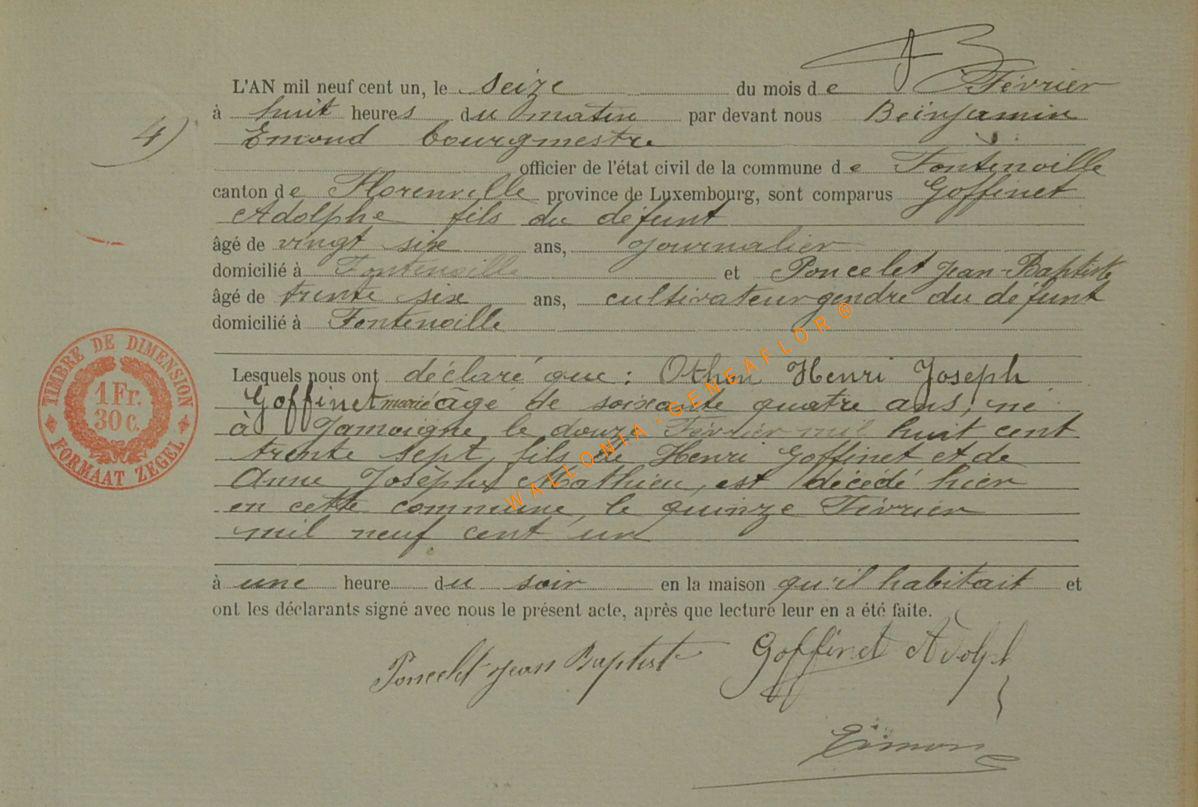 L'AN mil neuf cent un, le seize du mois de Février
à huit heures du matin par devant nous Beinjamin
4)
Emond bourgmestre
officier de l'état civil de la commune de Fontenoille
canton de Florenville province de Luxembourg, sont comparus Goffinet
Adolphe fils du défunt
âgé de vingt six ans, journalier
domicilié à Fontenoille et Poncelet Jean-Baptiste
âgé de trente six ans, cultivateur gendre du défunt
domicilié à Fontenoille
TIMBRE DE DIMENSION
1 Fr.
30 c.
FORMAAT ZEGEL
Lesquels nous ont déclaré que : Othon Henri Joseph
Goffinet marié âge de soixante quatre ans, né
à Jamoigne le douze Février mil huit cent
trente sept, fils de Henri Goffinet et de
Anne Josèphe Mathieu, est décédé hier
en cette commune, le quinze Février
mil neuf cent un
WALLONIA - GENEAFLOR ©
à une heure du soir en la maison qu'il habitait et
ont les déclarants signé avec nous le présent acte, après que lecture leur en a été faite.
Poncelet Jean Baptist Goffinet Adolph